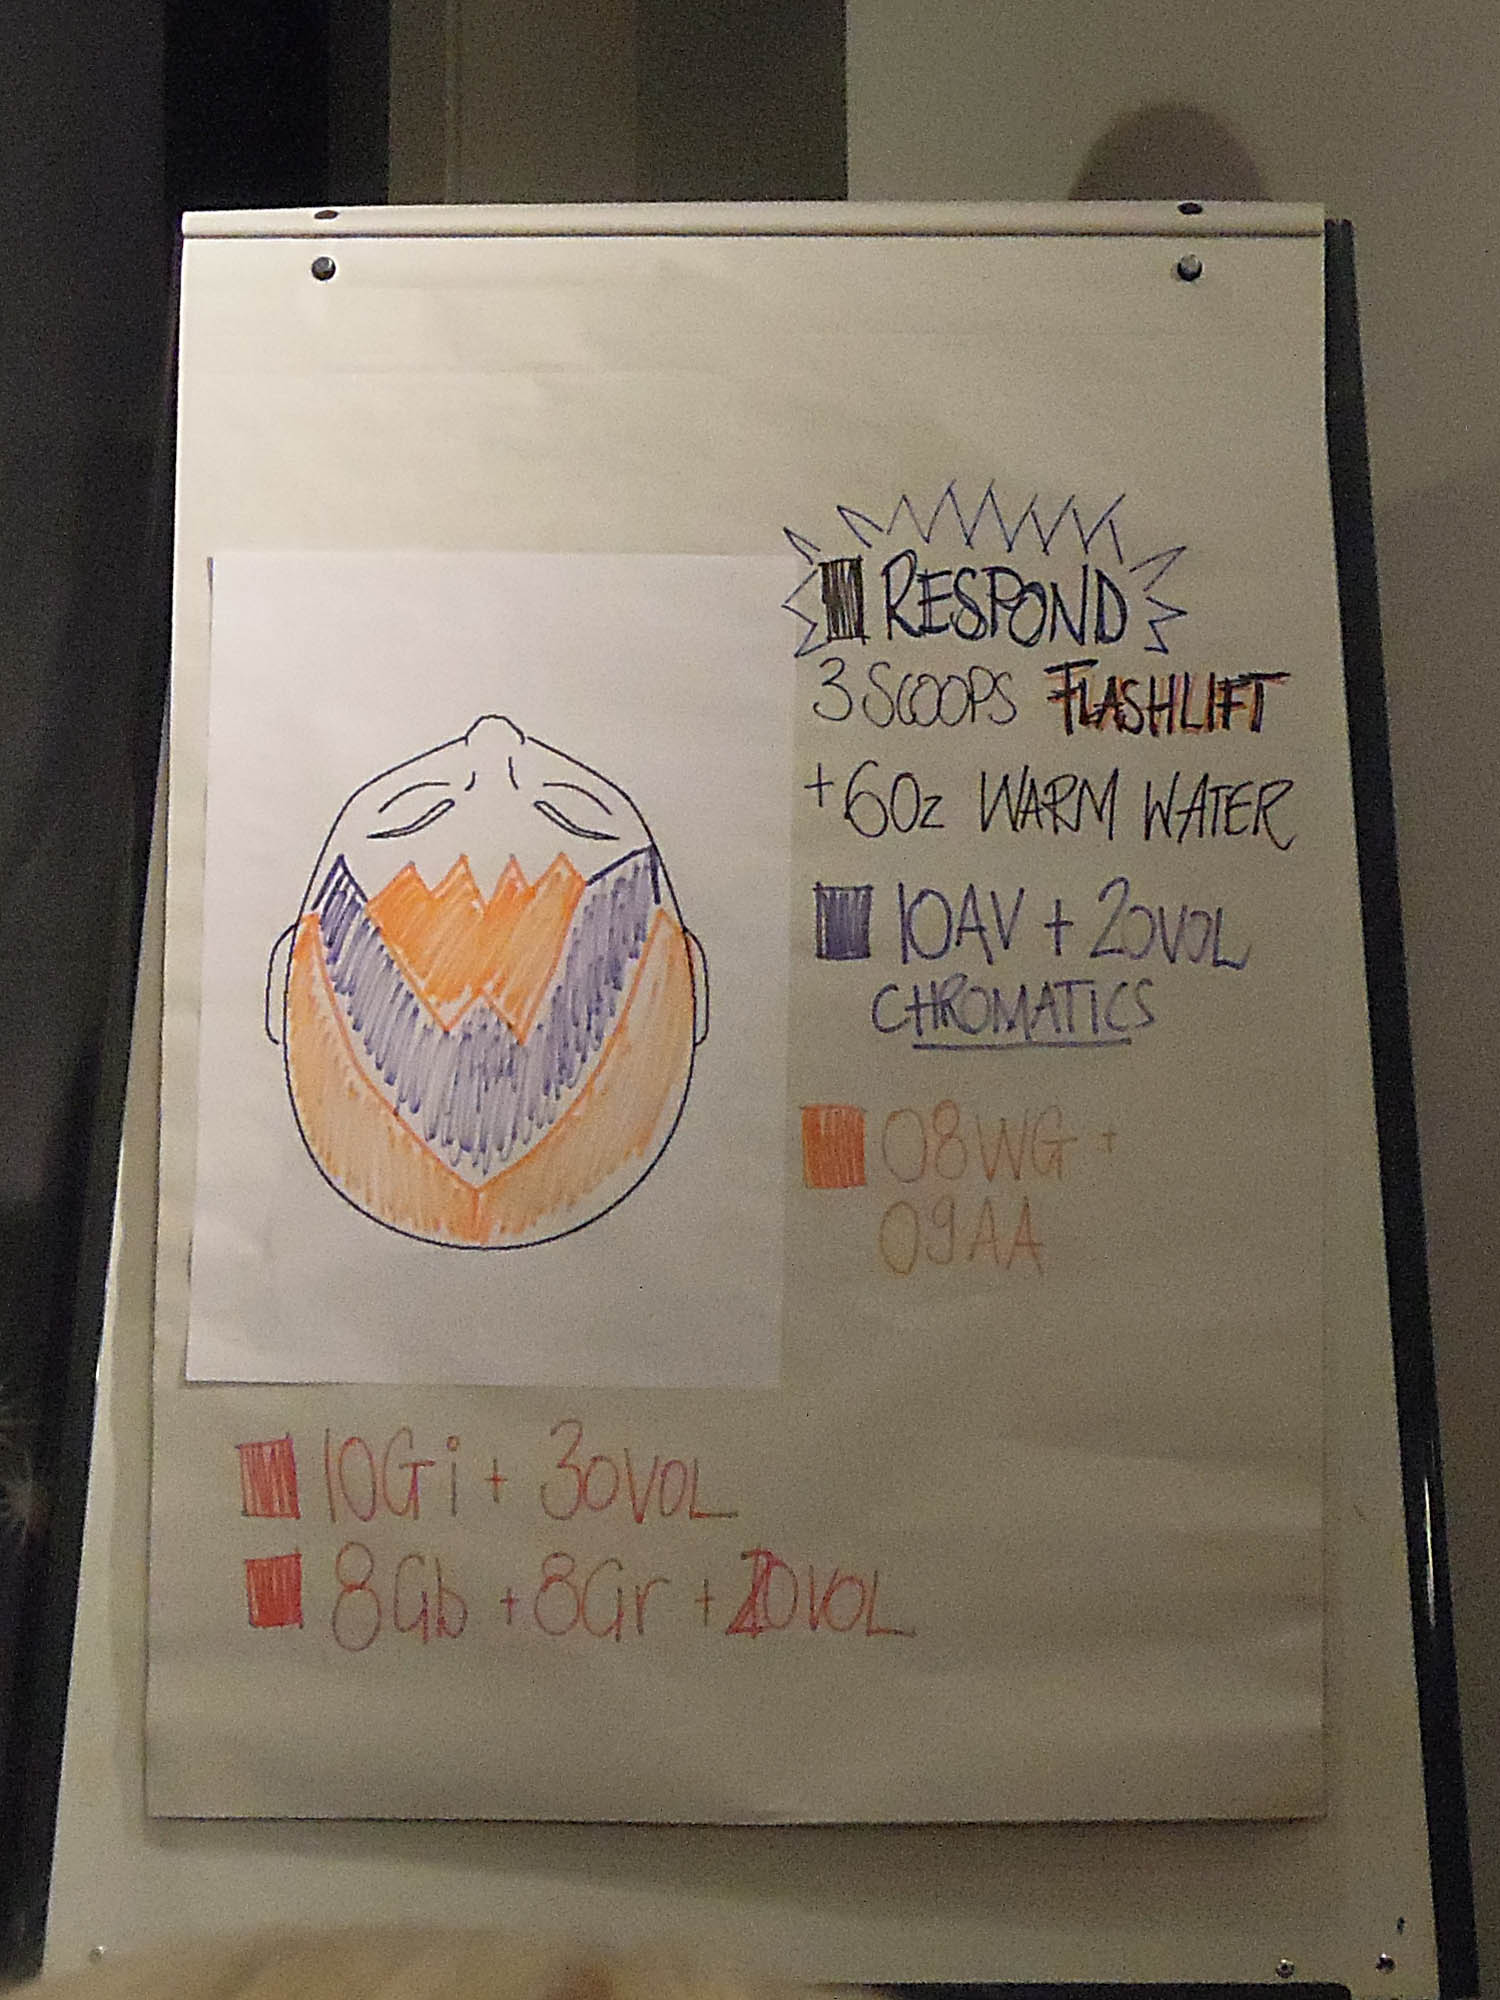 RESPOND
3 SCOOPS FLASHLIFT
+ 6Oz WARM WATER
10AV + 20VOL
CHROMATICS
08WG +
09AA
10Gi + 30VOL
8Gb + 8Gr + VOL